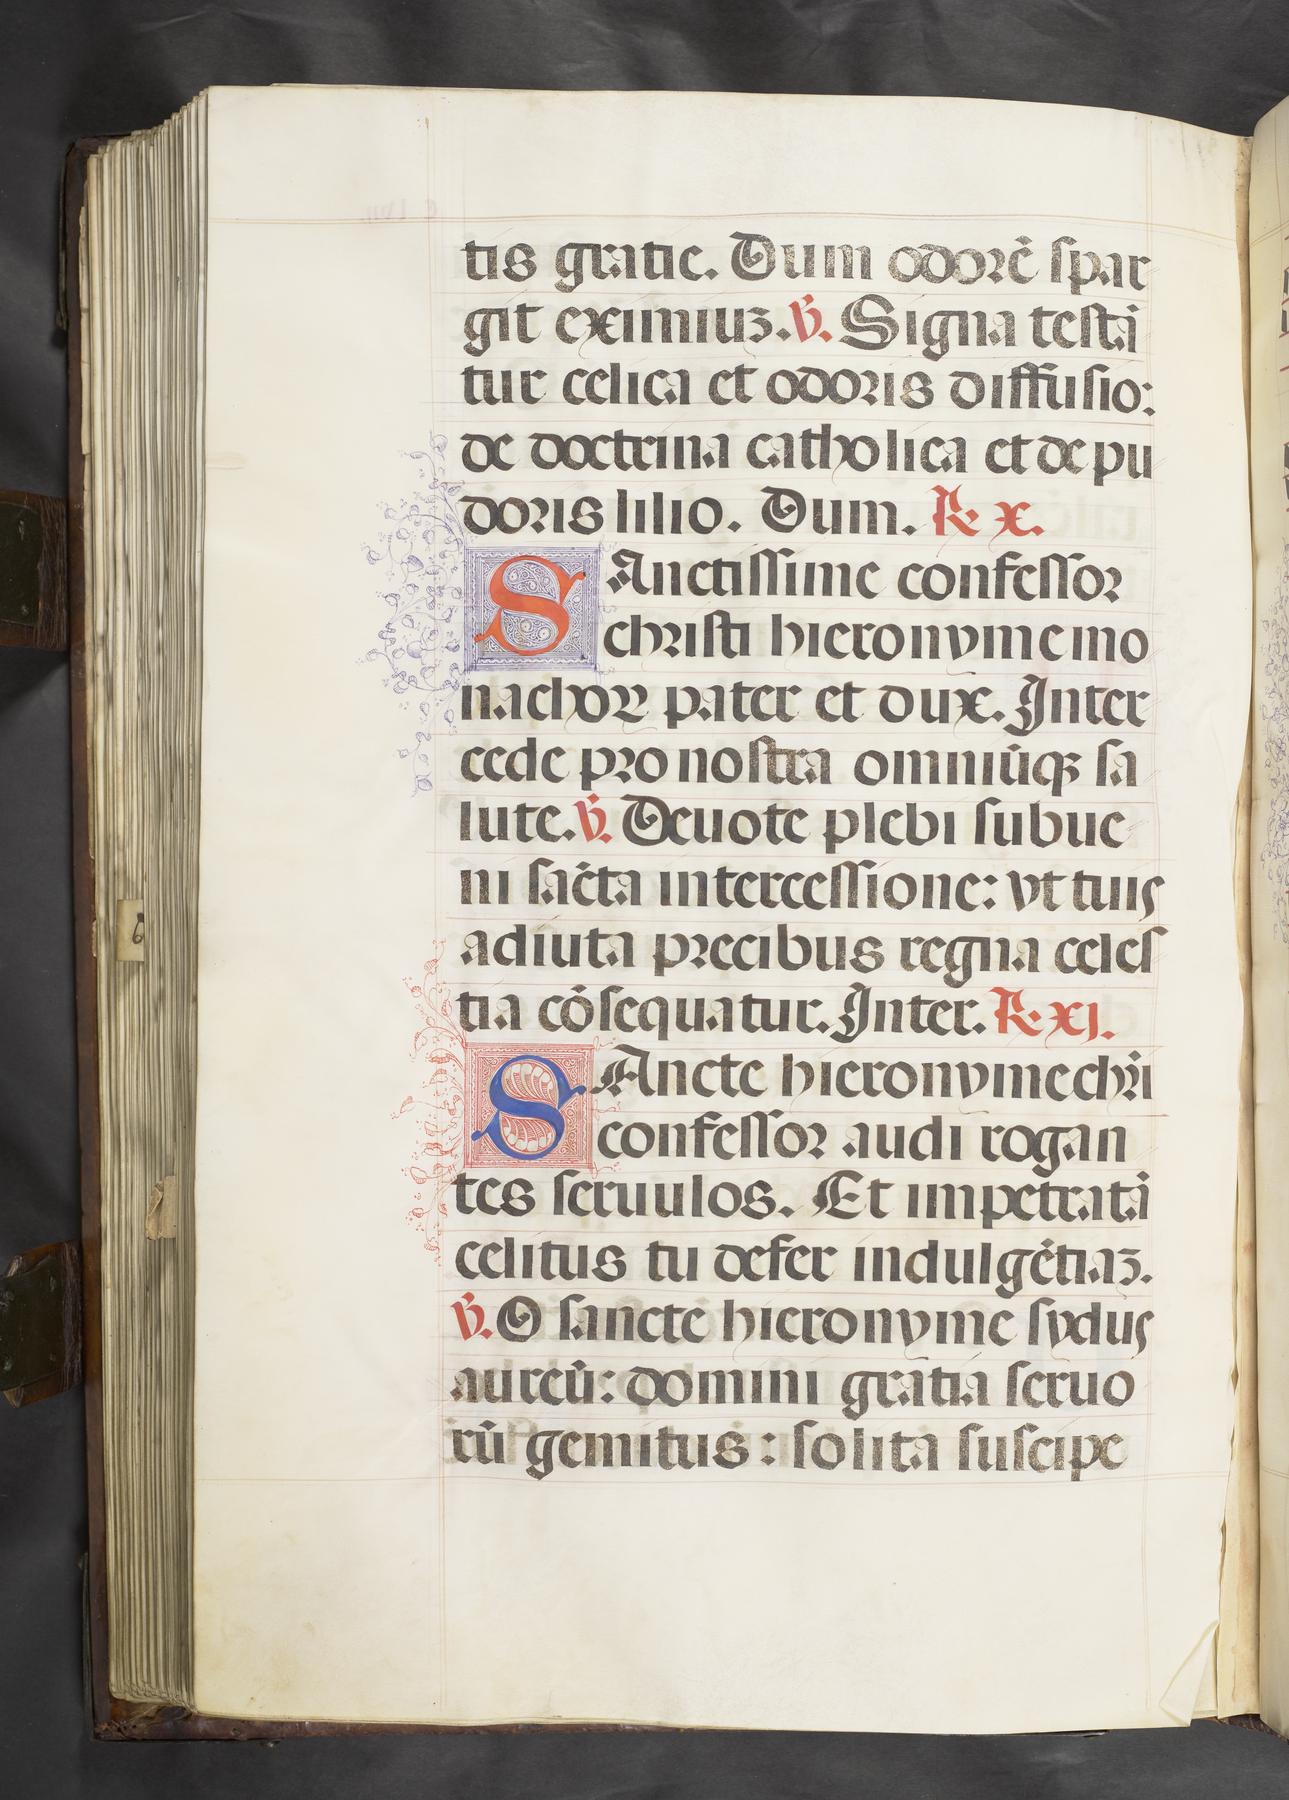 tis gratie. Dum odorē spar
git eximiuz. ℣. Signa testā
tur celica et odoris diffusio:
de doctrina catholica et de pu
doris lilio. Dum. ℟ x.
SAnctissime confessor
christi hieronyme mo
nachoꝝ pater et dux. Inter
cede pro nostra omniūqꝫ sa
lute. ℣. Deuote plebi subue
ni sācta intercessione: vt tuis
adiuta precibus regna celes
tia cōsequatur. Inter. ℟ xj.
SAncte hieronyme chr̄i
confessor audi rogan
tes seruulos. Et impetratā
celitus tu defer indulgētiaz.
℣. O sancte hieronyme sydus
aureū: domini gratia seruo
rū gemitus: solita suscipe
6